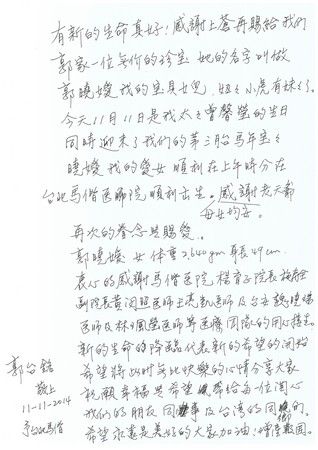 有新的生命真好！感謝上蒼再賜給我們
郭家一位無價的珍寶 她的名字叫做
郭曉嬡 我的寶貝女兒 妞妞 小虎有妹妹了。
今天11月11日是我太太曾馨瑩的生日
同時迎來了我們的第三胎馬年寶寶
曉嬡 我的愛女 順利在上午時分在
台北馬偕医院順利出生，感謝老天爺
母女均安。
再次的眷念與賜愛。
郭曉嬡 女 体重2,640gm 身長49cm.
衷心的感謝馬偕医院 楊育正院長
副院長黃閔照医師 医師及
医師及林 医師等医療團隊的用心接生。
新的生命的降臨 代表新的希望的開始
希望將此時無比快樂的心情分享大家
祝願幸福與希望 帶給每一位関心
我們的朋友 同事 及台湾的同鄉們。
希望永遠是美好的 大家加油！
郭台銘
敬上
11-11-2014
于台北馬偕